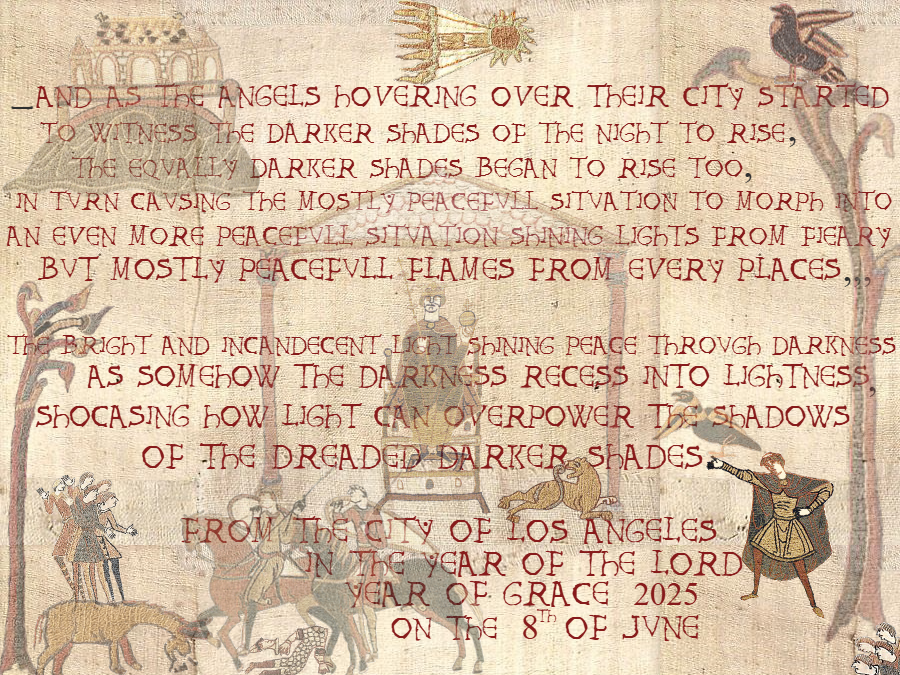 _AND AS THE ANGELS HOVERING OVER THEIR CITY STARTED
TO WITNESS THE DARKER SHADES OF THE NIGHT TO RISE,
THE EQUALLY DARKER SHADES BEGAN TO RISE TOO,
IN TVRN CAVSING THE MOSTLY PEACEFVLL SITVATION TO MORPH INTO
AN EVEN MORE PEACEFVLL SITVATION SHINING LIGHTS FROM FIEARY
BVT MOSTLY PEACEFVLL FLAMES FROM EVERY PLACES,,,
THE BRIGHT AND INCANDECENT LIGHT SHINING PEACE THROVGH DARKNESS
AS SOMEHOW THE DARKNESS RECESS INTO LIGHTNESS,
SHOCASING HOW LIGHT CAN OVERPOWER THE SHADOWS
OF THE DREADED DARKER SHADES.
FROM THE CITY OF LOS ANGELES
IN THE YEAR OF THE LORD
YEAR OF GRACE 2025
ON THE 8TH OF JVNE